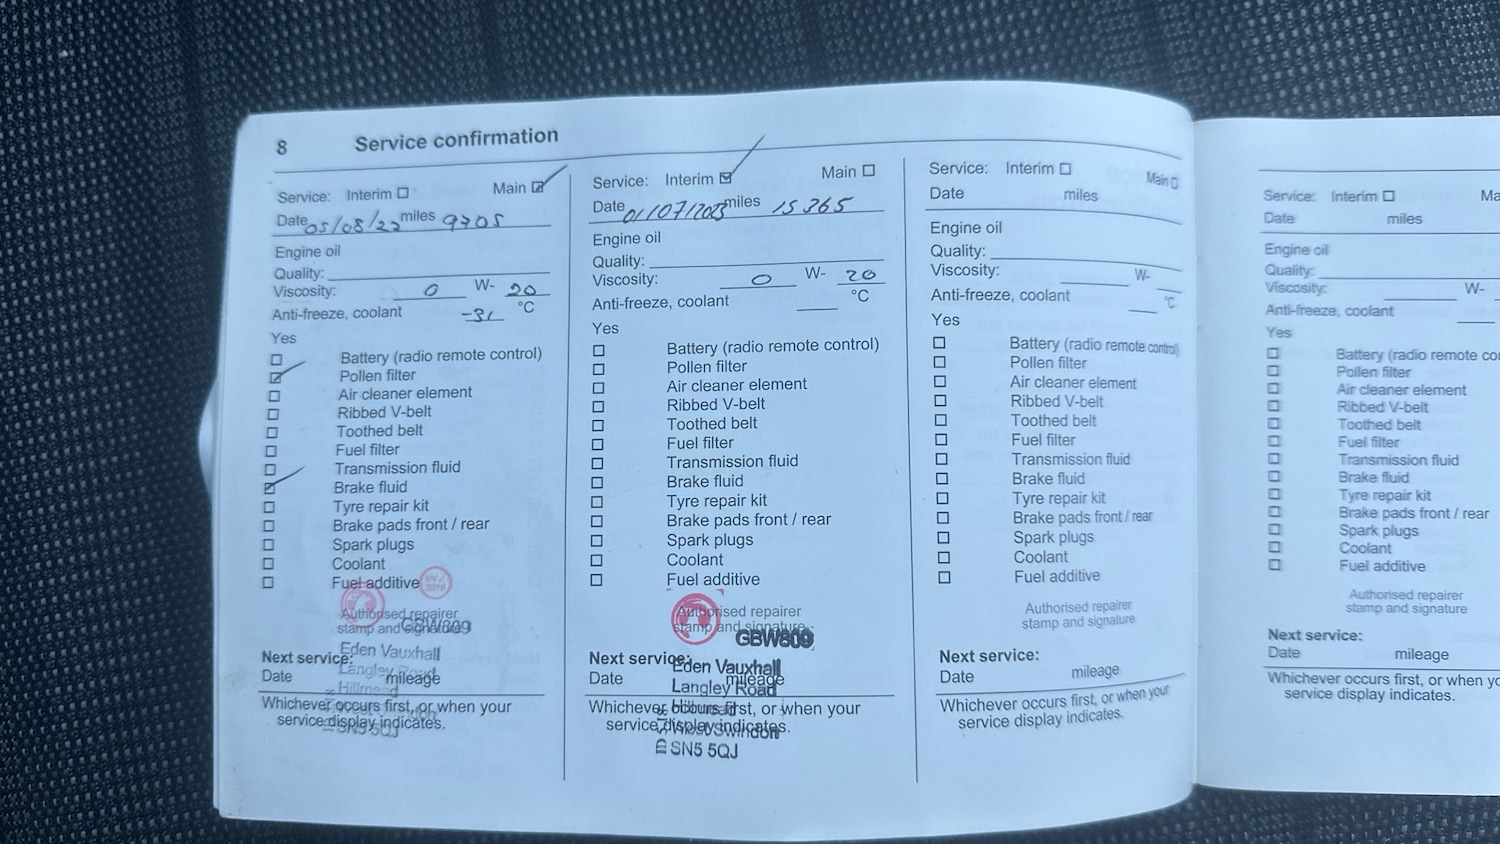 8 Service confirmation
Service: Interim ☐ Main ☑
Date 05/08/22 miles 9705
Engine oil
Quality:
Viscosity: 0 W- 20
Anti-freeze, coolant -31 °C
Yes
☐ Battery (radio remote control)
☑ Pollen filter
☐ Air cleaner element
☐ Ribbed V-belt
☐ Toothed belt
☐ Fuel filter
☐ Transmission fluid
☑ Brake fluid
☐ Tyre repair kit
☐ Brake pads front / rear
☐ Spark plugs
☐ Coolant
☐ Fuel additive
Authorised repairer
stamp and signature
GBW809
Eden Vauxhall
Langley Road
Hillmead
SN5 5QJ
Next service:
Date mileage
Whichever occurs first, or when your
service display indicates.
Service: Interim ☑ Main ☐
Date 01/07/2023 miles 15365
Engine oil
Quality:
Viscosity: 0 W- 20
Anti-freeze, coolant °C
Yes
☐ Battery (radio remote control)
☐ Pollen filter
☐ Air cleaner element
☐ Ribbed V-belt
☐ Toothed belt
☐ Fuel filter
☐ Transmission fluid
☐ Brake fluid
☐ Tyre repair kit
☐ Brake pads front / rear
☐ Spark plugs
☐ Coolant
☐ Fuel additive
Authorised repairer
stamp and signature
GBW809
Eden Vauxhall
Langley Road
Hillmead
Swindon
SN5 5QJ
Next service:
Date mileage
Whichever occurs first, or when your
service display indicates.
Service: Interim ☐ Main ☐
Date miles
Engine oil
Quality:
Viscosity: W-
Anti-freeze, coolant °C
Yes
☐ Battery (radio remote control)
☐ Pollen filter
☐ Air cleaner element
☐ Ribbed V-belt
☐ Toothed belt
☐ Fuel filter
☐ Transmission fluid
☐ Brake fluid
☐ Tyre repair kit
☐ Brake pads front / rear
☐ Spark plugs
☐ Coolant
☐ Fuel additive
Authorised repairer
stamp and signature
Next service:
Date mileage
Whichever occurs first, or when your
service display indicates.
Service: Interim ☐ Ma
Date miles
Engine oil
Quality:
Viscosity: W-
Anti-freeze, coolant
Yes
☐ Battery (radio remote co
☐ Pollen filter
☐ Air cleaner element
☐ Ribbed V-belt
☐ Toothed belt
☐ Fuel filter
☐ Transmission fluid
☐ Brake fluid
☐ Tyre repair kit
☐ Brake pads front / rear
☐ Spark plugs
☐ Coolant
☐ Fuel additive
Authorised repairer
stamp and signature
Next service:
Date mileage
Whichever occurs first, or when yo
service display indicates.